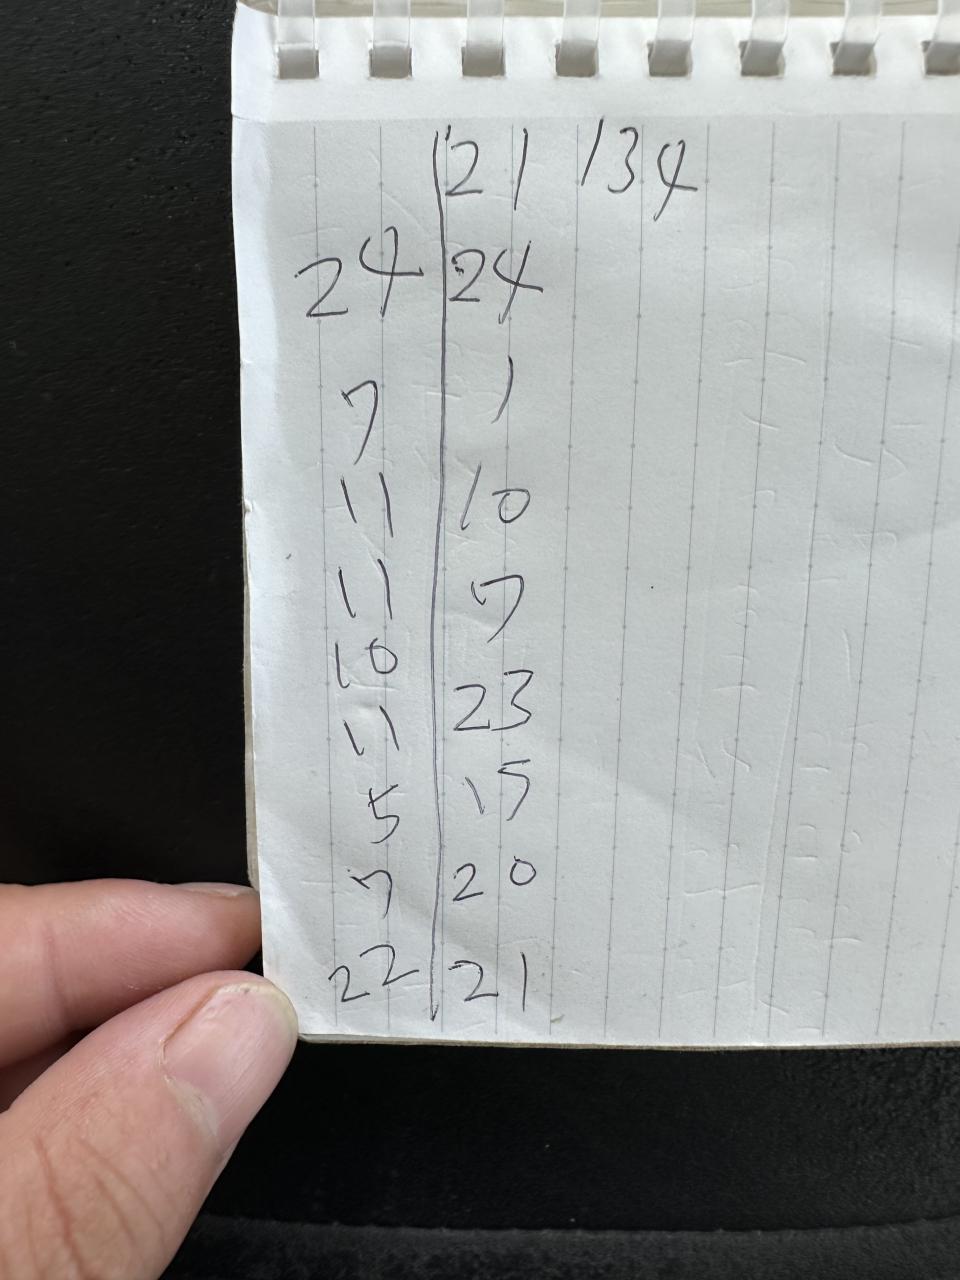 21 134
24 24
7 1
11 10
11 7
10 23
11 15
5 20
7 21
22